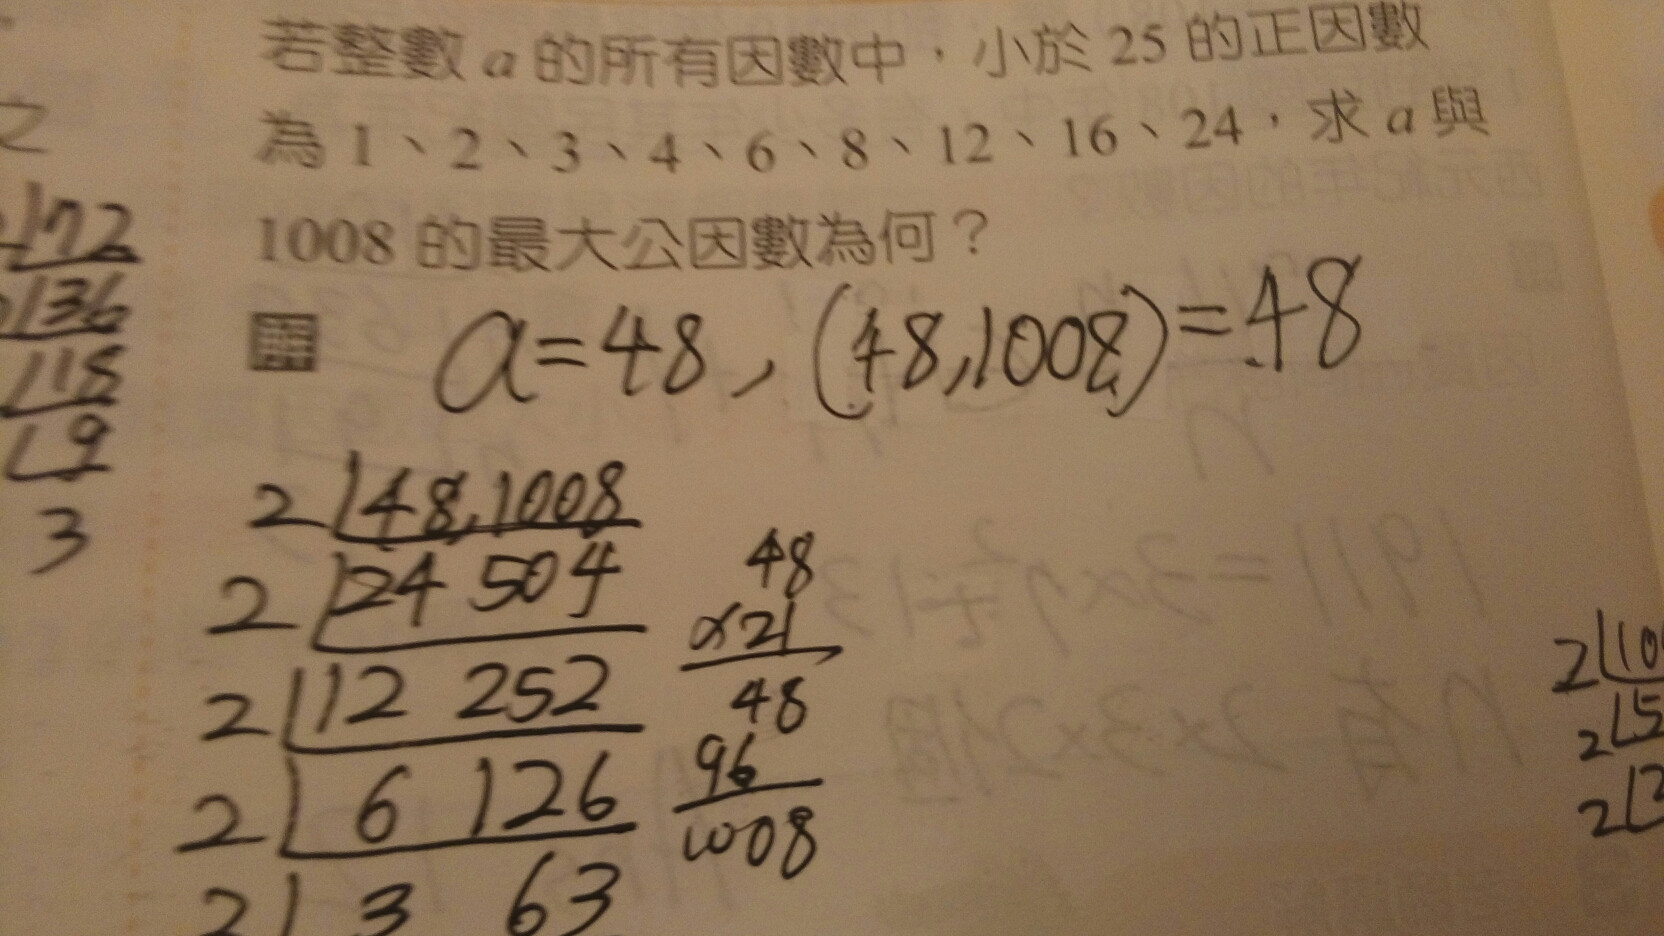 若整數 a 的所有因數中，小於 25 的正因數
為 1、2、3、4、6、8、12、16、24，求 a 與
1008 的最大公因數為何？
a=48, (48,1008)=48
2 48,1008
2 24 504
2 12 252
2 6 126
2 3 63
48
×21
48
96
1008
之
172
136
118
19
3
2 10
2 5
2 2